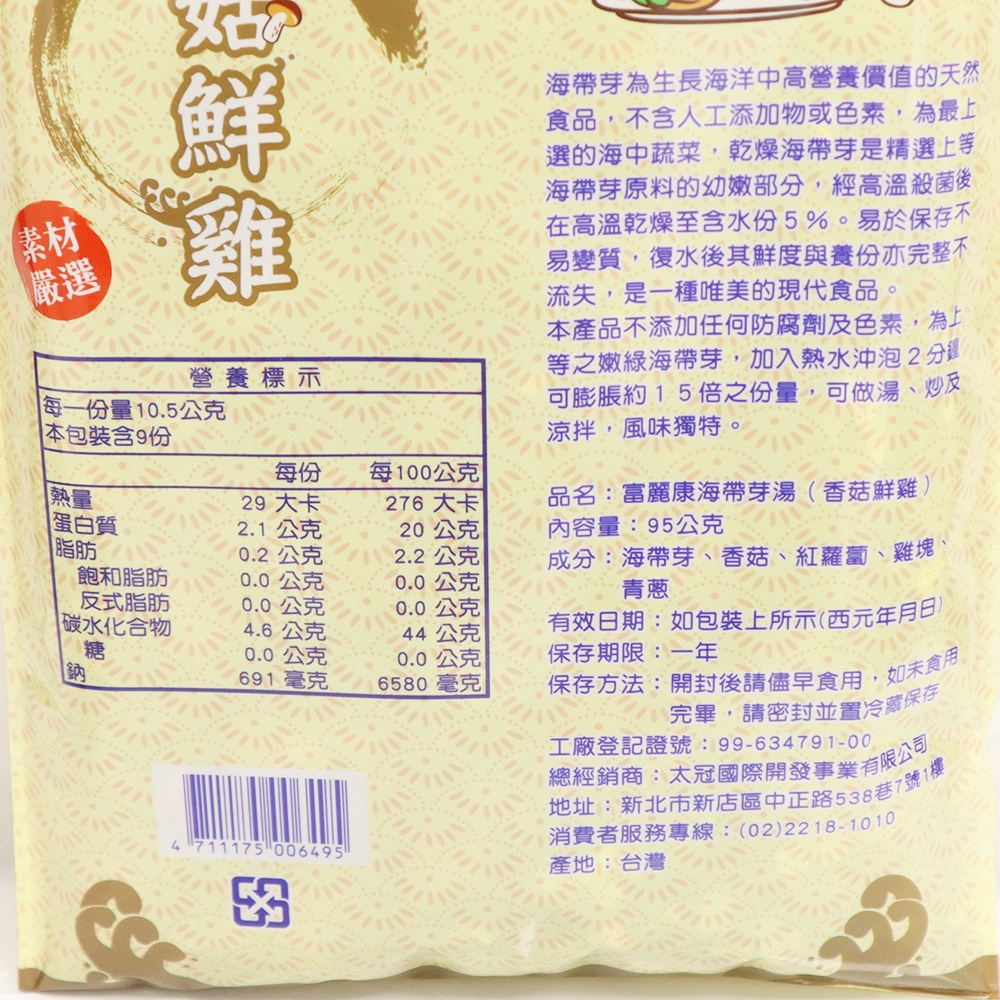 菇鮮雞
素材
嚴選
營養標示
每一份量10.5公克
本包裝含9份
每份 每100公克
熱量 29 大卡 276 大卡
蛋白質 2.1 公克 20 公克
脂肪 0.2 公克 2.2 公克
飽和脂肪 0.0 公克 0.0 公克
反式脂肪 0.0 公克 0.0 公克
碳水化合物 4.6 公克 44 公克
糖 0.0 公克 0.0 公克
鈉 691 毫克 6580 毫克
4 711175 006495
海帶芽為生長海洋中高營養價值的天然
食品，不含人工添加物或色素，為最上
選的海中蔬菜，乾燥海帶芽是精選上等
海帶芽原料的幼嫩部分，經高溫殺菌後
在高溫乾燥至含水份5%。易於保存不
易變質，復水後其鮮度與養份亦完整不
流失，是一種唯美的現代食品。
本產品不添加任何防腐劑及色素，為上
等之嫩綠海帶芽，加入熱水沖泡2分鐘
可膨脹約15倍之份量，可做湯、炒及
涼拌，風味獨特。
品名：富麗康海帶芽湯（香菇鮮雞）
內容量：95公克
成分：海帶芽、香菇、紅蘿蔔、雞塊、
青蔥
有效日期：如包裝上所示(西元年月日)
保存期限：一年
保存方法：開封後請儘早食用，如未食用
完畢，請密封並置冷藏保存
工廠登記證號：99-634791-00
總經銷商：太冠國際開發事業有限公司
地址：新北市新店區中正路538巷7號1樓
消費者服務專線：(02)2218-1010
產地：台灣